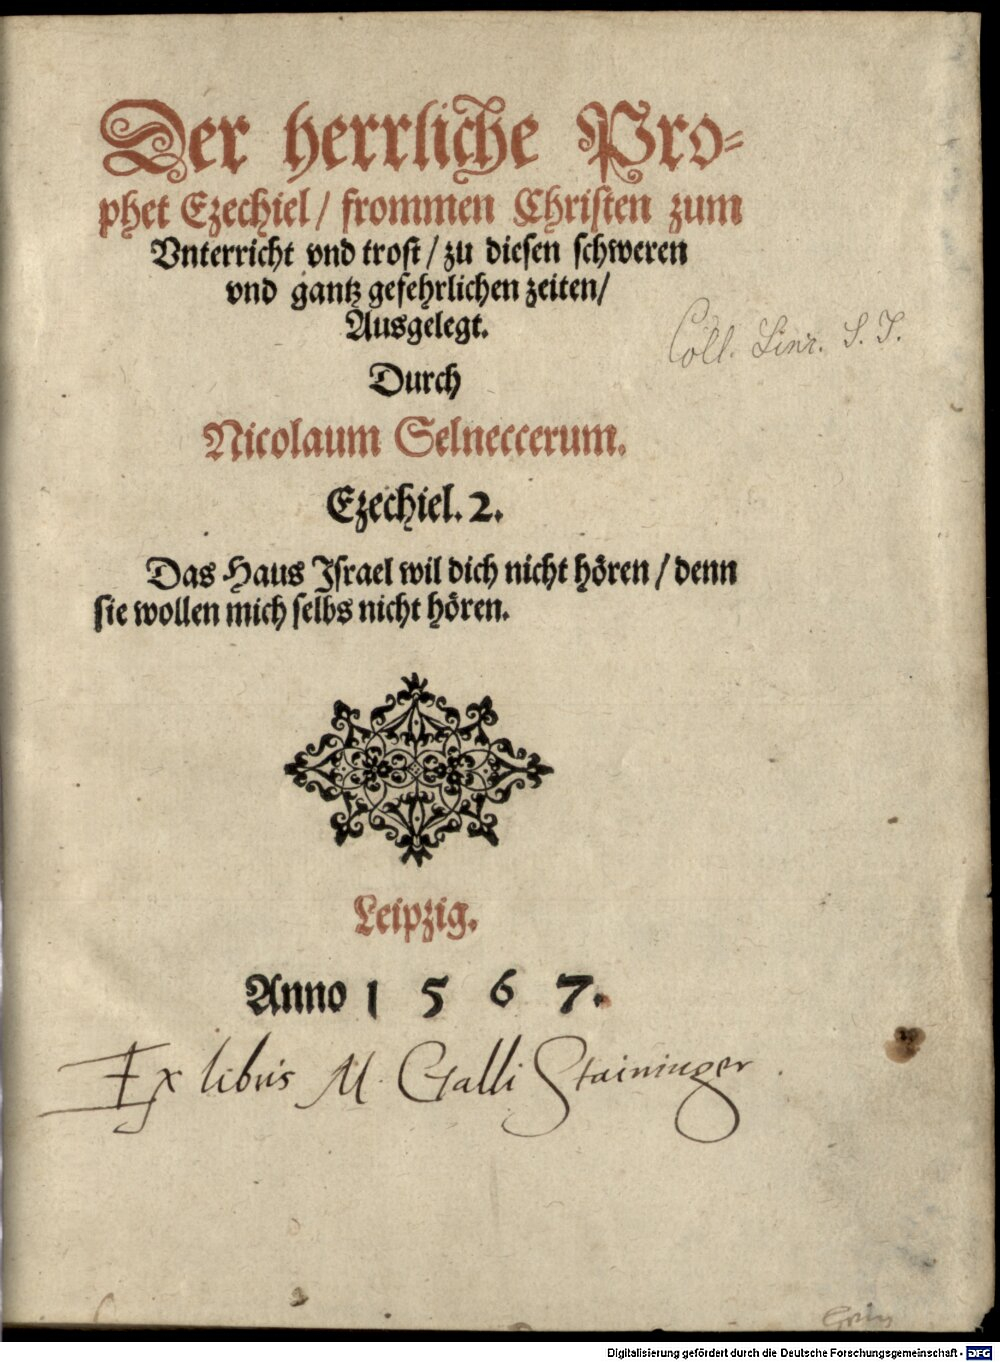 Der herrliche Pro-
phet Ezechiel / frommen Christen zum
Vnterricht vnd trost / zu diesen schweren
vnd gantz gefehrlichen zeiten /
Ausgelegt.
Coll. Linz. S. J.
Durch
Nicolaum Selneccerum.
Ezechiel. 2.
Das Haus Israel wil dich nicht hören / denn
sie wollen mich selbs nicht hören.
Leipzig.
Anno 1 5 6 7.
Ex libris M. Galli Staininger
Digitalisierung gefördert durch die Deutsche Forschungsgemeinschaft - DFG